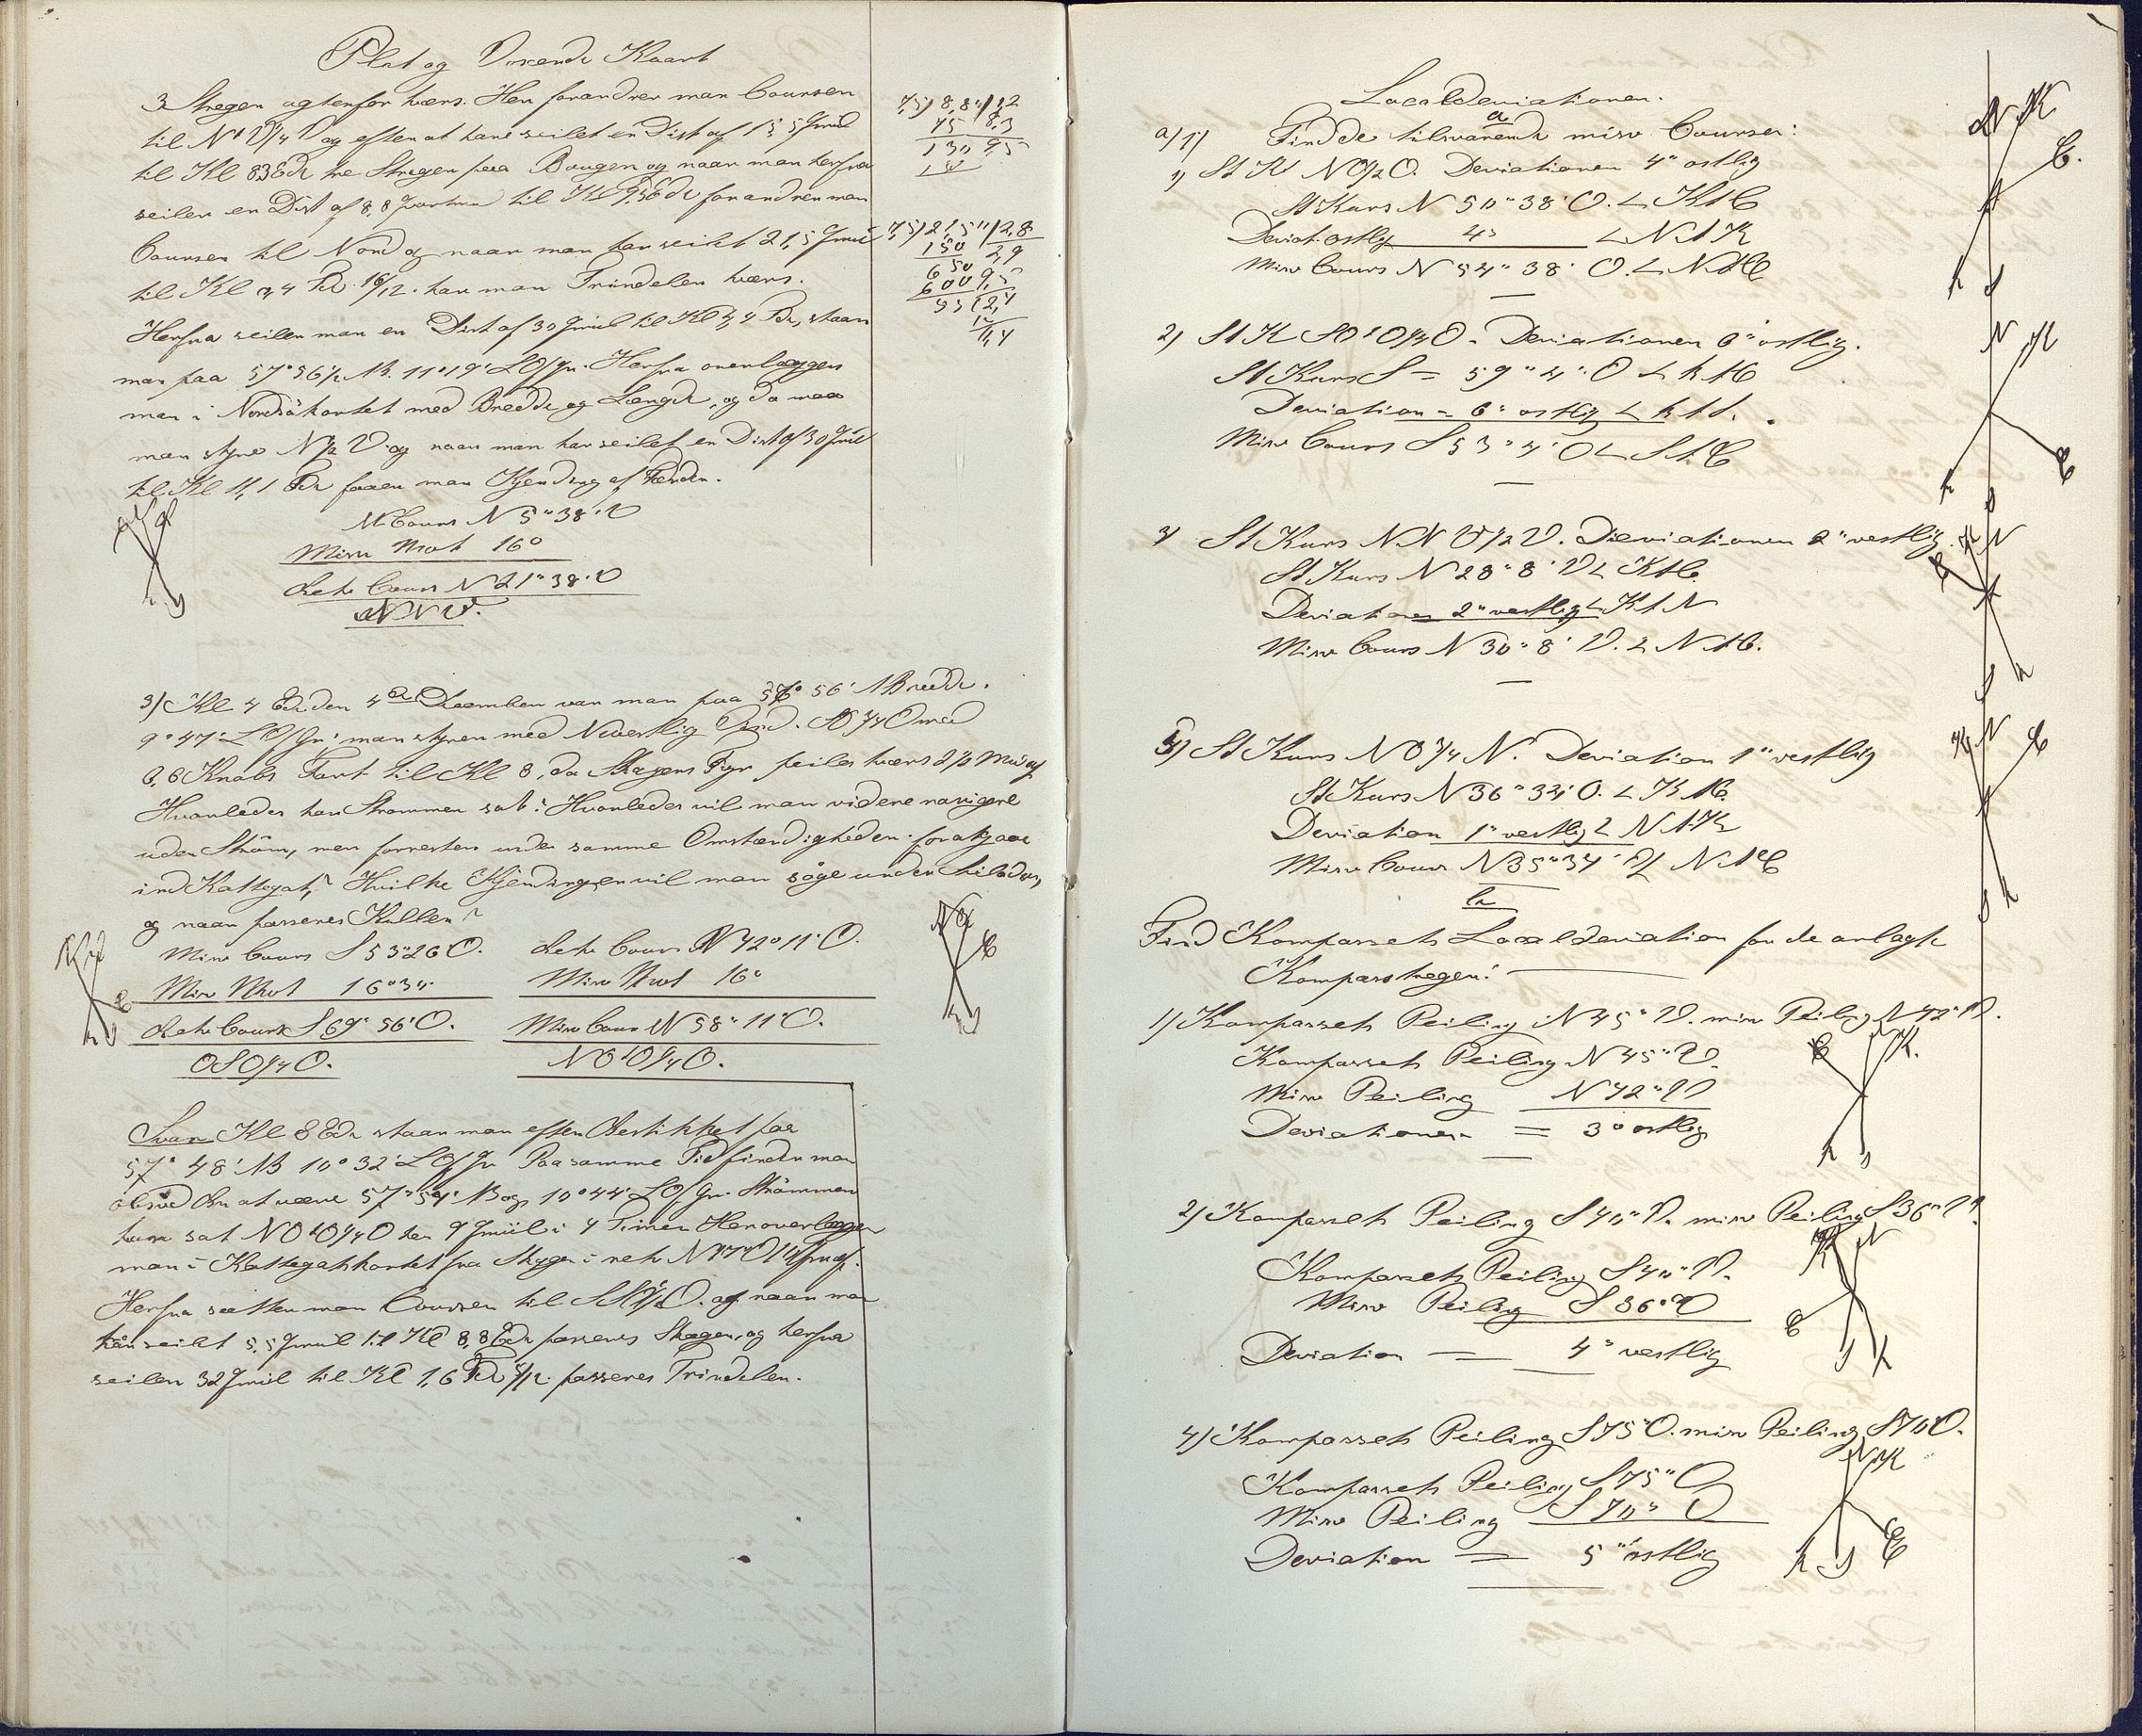 Plat og Voxende Kaart
3 Streger agtenfor tvers. Her forandrer man Coursen
til N t V 1/4 V og efter at have seilet en Dist af 15,5 Qmiil
til Kl 8,3 Edr tre Streger paa Bougen og naar man herfra
seiler en Dist af 8,8 til Kl 9,5 Edr forandrer man
Coursen til Nord og naar man har seilt 21,5 Qmiil
til Kl 2,4 Fr 16/12. har man Trindelen tvers.
Herfra seiler man en Dist af 30 Qmiil til Kl 4 Fr, staar
man paa 57° 56 1/2 NB. 11° 19' LO f Gr. Herfra overlægger
man i Nordsökortet med Bredde og Længde, og da maa
man styre N 1/2 V og naar man har seilet en Dist af 30 Qmiil
til Kl 11,1 Edr faaer man Kjending af Færder.
7,5) 8,8" / 1,2
75 8,3
130 9,5
15
7,5) 21,5" / 2,8
150
650 9,5
600
M Cours N 5° 38' V
Misv Mod 16°
Retv Cours N 21° 38' V
NNV.
3) Kl 4 Edr den 4de December var man paa 57° 56' N Bredde.
9° 47' LO f Gr; man styrer med Nvestlig Vind. SO 3/4 O med
6,6 Knobs Fart til Kl 8, da Skagens Fyr peiles tvers 2 1/2 Miil af
Hvorledes har Strømmen sat? Hvorledes vil man videre navigere
uden Ström, men forresten under samme Omstændigheder for at gaae
ind Kattegat? Hvilke Kjendinger vil man söge under Seiladsen,
og naar passeres Kullen?
Misv Cours S 53° 26 O. Retv Cours N 42° 11' O.
Misv Mod 16° 30' Misv Mod 16°
Retv Cours S 69° 56' O. Misv Cours N 58° 11' O.
OSO 1/4 O. NO t O 1/4 O.
Svar Kl 8 Edr staar man efter Bestikket paa
57° 48' NB 10° 32' LO f Gr Paa samme Tid finder man
obsvd Br at være 57° 54' NB og 10° 44' LO f Gr. Strömmen
har sat NO t O 1/4 O 9 Qmiil i 4 Timer Her overlægger
man i Kattegatskortet fra Skagen i retv
Herfra sætter man Coursen til og naar man
har seilt 5,5 Qmiil til Kl 8,8 Edr passeres Skagen, og herfra
seiler 32 Qmiil til Kl 1,6 Fr 5/12. passeres Trindelen.
Localdeviationen.
a
a) 1) Find de tilsvarende misv Courser:
1) St K NO 1/2 O. Deviationen 4° ostlig
St Kurs N 50° 38' O. ∠ K t C
Deviat. ostlig 4° ∠ N t K
Misv Cours N 54° 38' O. ∠ N t C
2) St K SO t O 1/4 O. Deviationen 6° ostlig.
St Kurs S = 59° 4' O ∠ k t C
Deviation = 6° ostlig ∠ k t S.
Misv Cours S 53° 4' O ∠ S t C
3) St Kurs NNV 1/2 V. Deviationen 2° vestlig.
St Kurs N 28° 8' V ∠ K t C.
Deviationen 2° vestlig ∠ K t N
Misv Cours N 30° 8' V. ∠ N t C.
5) St Kurs NO 3/4 N. Deviation 1° vestlig
St Kurs N 36° 34' O. ∠ K t C.
Deviation 1° vestlig ∠ N t K
Misv Cours N 35° 34' O ∠ N t C
b
Find Kompassets Localdeviation for de anlagte
Kompasstreger:
1) Kompassets Peiling N 45° V. misv Peiling N 42° V.
Kompassets Peiling N 45° V.
Misv Peiling N 42° V
Deviationen = 3° ostlig
2) Kompassets Peiling S 40° V. misv Peiling S 36° V.
Kompassets Peiling S 40° V.
Misv Peiling S 36° V
Deviation = 4° vestlig
4) Kompassets Peiling S 75° O. misv Peiling S 70° O.
Kompassets Peiling S 75° O
Misv Peiling S 70° O
Deviation = 5° ostlig